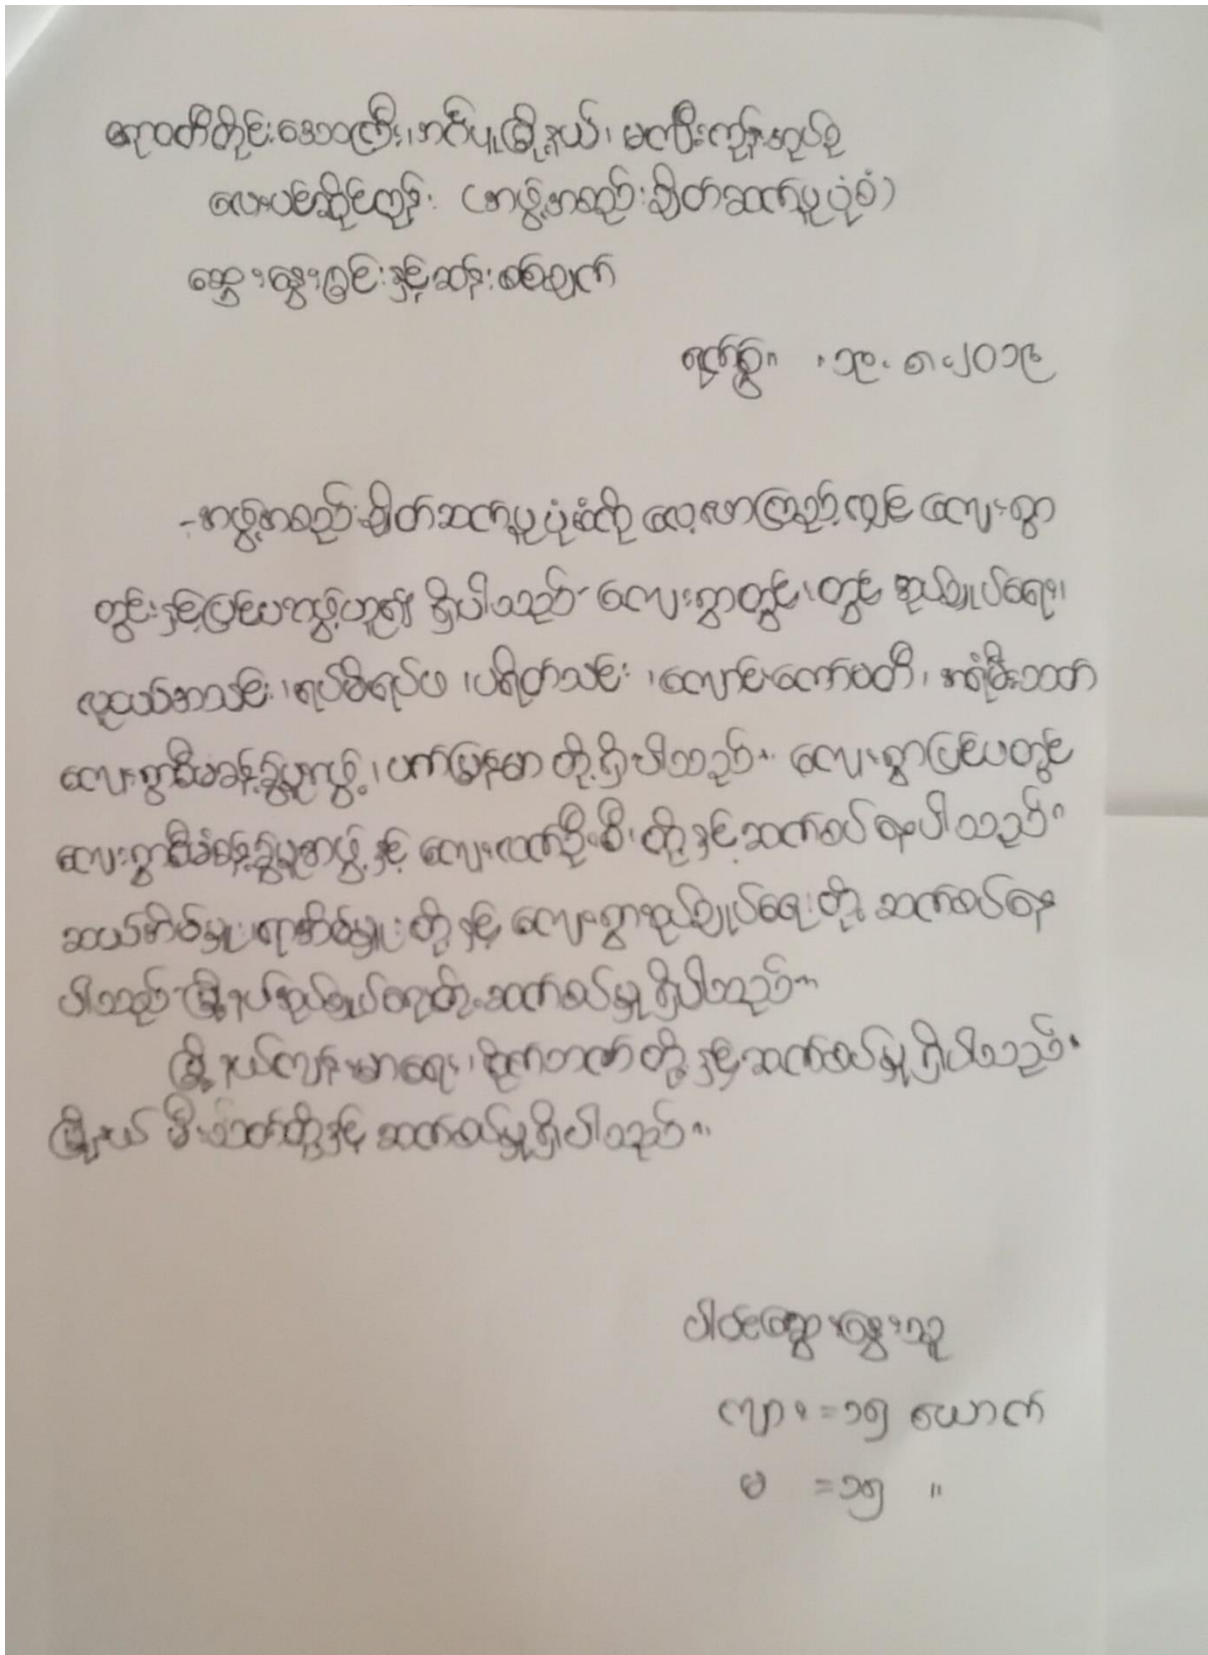 ဧရာဝတီတိုင်းဒေသကြီး၊ အင်္ဂပူမြို့နယ်၊ မကျီးကုန်းအုပ်စု
လေးပင်ဆိုင်ကုန်း (အဖွဲ့အစည်းချိတ်ဆက်မှုပုံစံ)
ဆွေးနွေးခြင်းနှင့်ဆန်းစစ်ချက်
ရက်စွဲ။ ၁၃.၈.၂၀၁၉
- အဖွဲ့အစည်းချိတ်ဆက်မှုပုံစံကို လေ့လာကြည့်လျှင် ကျေးရွာ
တွင်းနှင့်ပြင်ပအဖွဲ့ဟူ၍ ရှိပါသည်။ ကျေးရွာတွင်းတွင် အုပ်ချုပ်ရေး၊
လူငယ်အသင်း၊ ရပ်မိရပ်ဖ၊ ပရိတ်သင်း၊ ကျောင်းကော်မတီ၊ အရံမီးသတ်
ကျေးရွာစီမံခန့်ခွဲမှုအဖွဲ့၊ ပက်မြန်မာ တို့ ရှိပါသည်။ ကျေးရွာပြင်ပတွင်
ကျေးရွာစီမံခန့်ခွဲမှုအဖွဲ့နှင့် ကျေးလက်ဦးစီး တို့နှင့် ဆက်စပ်နေပါသည်။
ဆယ်အိမ်မှူး၊ ရာအိမ်မှူး တို့နှင့် ကျေးရွာအုပ်ချုပ်ရေးတို့ ဆက်စပ်နေ
ပါသည်။ မြို့နယ်အုပ်ချုပ်ရေးတို့ ဆက်စပ်မှုရှိပါသည်။
မြို့နယ်ကျန်းမာရေး၊ စိုက်ဘဏ် တို့နှင့် ဆက်စပ်မှုရှိပါသည်။
မြို့နယ် မီးသတ်တို့နှင့် ဆက်စပ်မှုရှိပါသည်။
ပါဝင်ဆွေးနွေးသူ
ကျား = ၁၅ ယောက်
မ = ၁၅ "